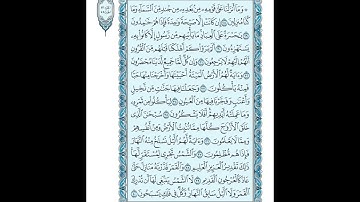 ۞ وَمَآ أَنزَلۡنَا عَلَىٰ قَوۡمِهِۦ مِنۢ بَعۡدِهِۦ مِن جُندٖ مِّنَ ٱلسَّمَآءِ وَمَا
كُنَّا مُنزِلِينَ ٢٨ إِن كَانَتۡ إِلَّا صَيۡحَةٗ وَٰحِدَةٗ فَإِذَا هُمۡ خَٰمِدُونَ
٢٩ يَٰحَسۡرَةً عَلَى ٱلۡعِبَادِۚ مَا يَأۡتِيهِم مِّن رَّسُولٍ إِلَّا كَانُواْ بِهِۦ
يَسۡتَهۡزِءُونَ ٣٠ أَلَمۡ يَرَوۡاْ كَمۡ أَهۡلَكۡنَا قَبۡلَهُم مِّنَ ٱلۡقُرُونِ
أَنَّهُمۡ إِلَيۡهِمۡ لَا يَرۡجِعُونَ ٣١ وَإِن كُلّٞ لَّمَّا جَمِيعٞ لَّدَيۡنَا مُحۡضَرُونَ
٣٢ وَءَايَةٞ لَّهُمُ ٱلۡأَرۡضُ ٱلۡمَيۡتَةُ أَحۡيَيۡنَٰهَا وَأَخۡرَجۡنَا مِنۡهَا حَبّٗا
فَمِنۡهُ يَأۡكُلُونَ ٣٣ وَجَعَلۡنَا فِيهَا جَنَّٰتٖ مِّن نَّخِيلٖ
وَأَعۡنَٰبٖ وَفَجَّرۡنَا فِيهَا مِنَ ٱلۡعُيُونِ ٣٤ لِيَأۡكُلُواْ مِن ثَمَرِهِۦ
وَمَا عَمِلَتۡهُ أَيۡدِيهِمۡۚ أَفَلَا يَشۡكُرُونَ ٣٥ سُبۡحَٰنَ ٱلَّذِي
خَلَقَ ٱلۡأَزۡوَٰجَ كُلَّهَا مِمَّا تُنۢبِتُ ٱلۡأَرۡضُ وَمِنۡ أَنفُسِهِمۡ
وَمِمَّا لَا يَعۡلَمُونَ ٣٦ وَءَايَةٞ لَّهُمُ ٱلَّيۡلُ نَسۡلَخُ مِنۡهُ ٱلنَّهَارَ
فَإِذَا هُم مُّظۡلِمُونَ ٣٧ وَٱلشَّمۡسُ تَجۡرِي لِمُسۡتَقَرّٖ لَّهَاۚ
ذَٰلِكَ تَقۡدِيرُ ٱلۡعَزِيزِ ٱلۡعَلِيمِ ٣٨ وَٱلۡقَمَرَ قَدَّرۡنَٰهُ مَنَازِلَ حَتَّىٰ
عَادَ كَٱلۡعُرۡجُونِ ٱلۡقَدِيمِ ٣٩ لَا ٱلشَّمۡسُ يَنۢبَغِي لَهَآ أَن تُدۡرِكَ
ٱلۡقَمَرَ وَلَا ٱلَّيۡلُ سَابِقُ ٱلنَّهَارِۚ وَكُلّٞ فِي فَلَكٖ يَسۡبَحُونَ ٤٠